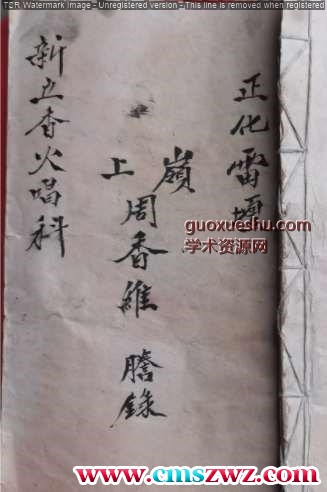 TSR Watermark Image - Unregistered version - This line is removed when registered
正化雷壇
嶺上周香維 謄錄
新立香火唱科
guoxueshu.com
学术资源网
www.cmszwz.com